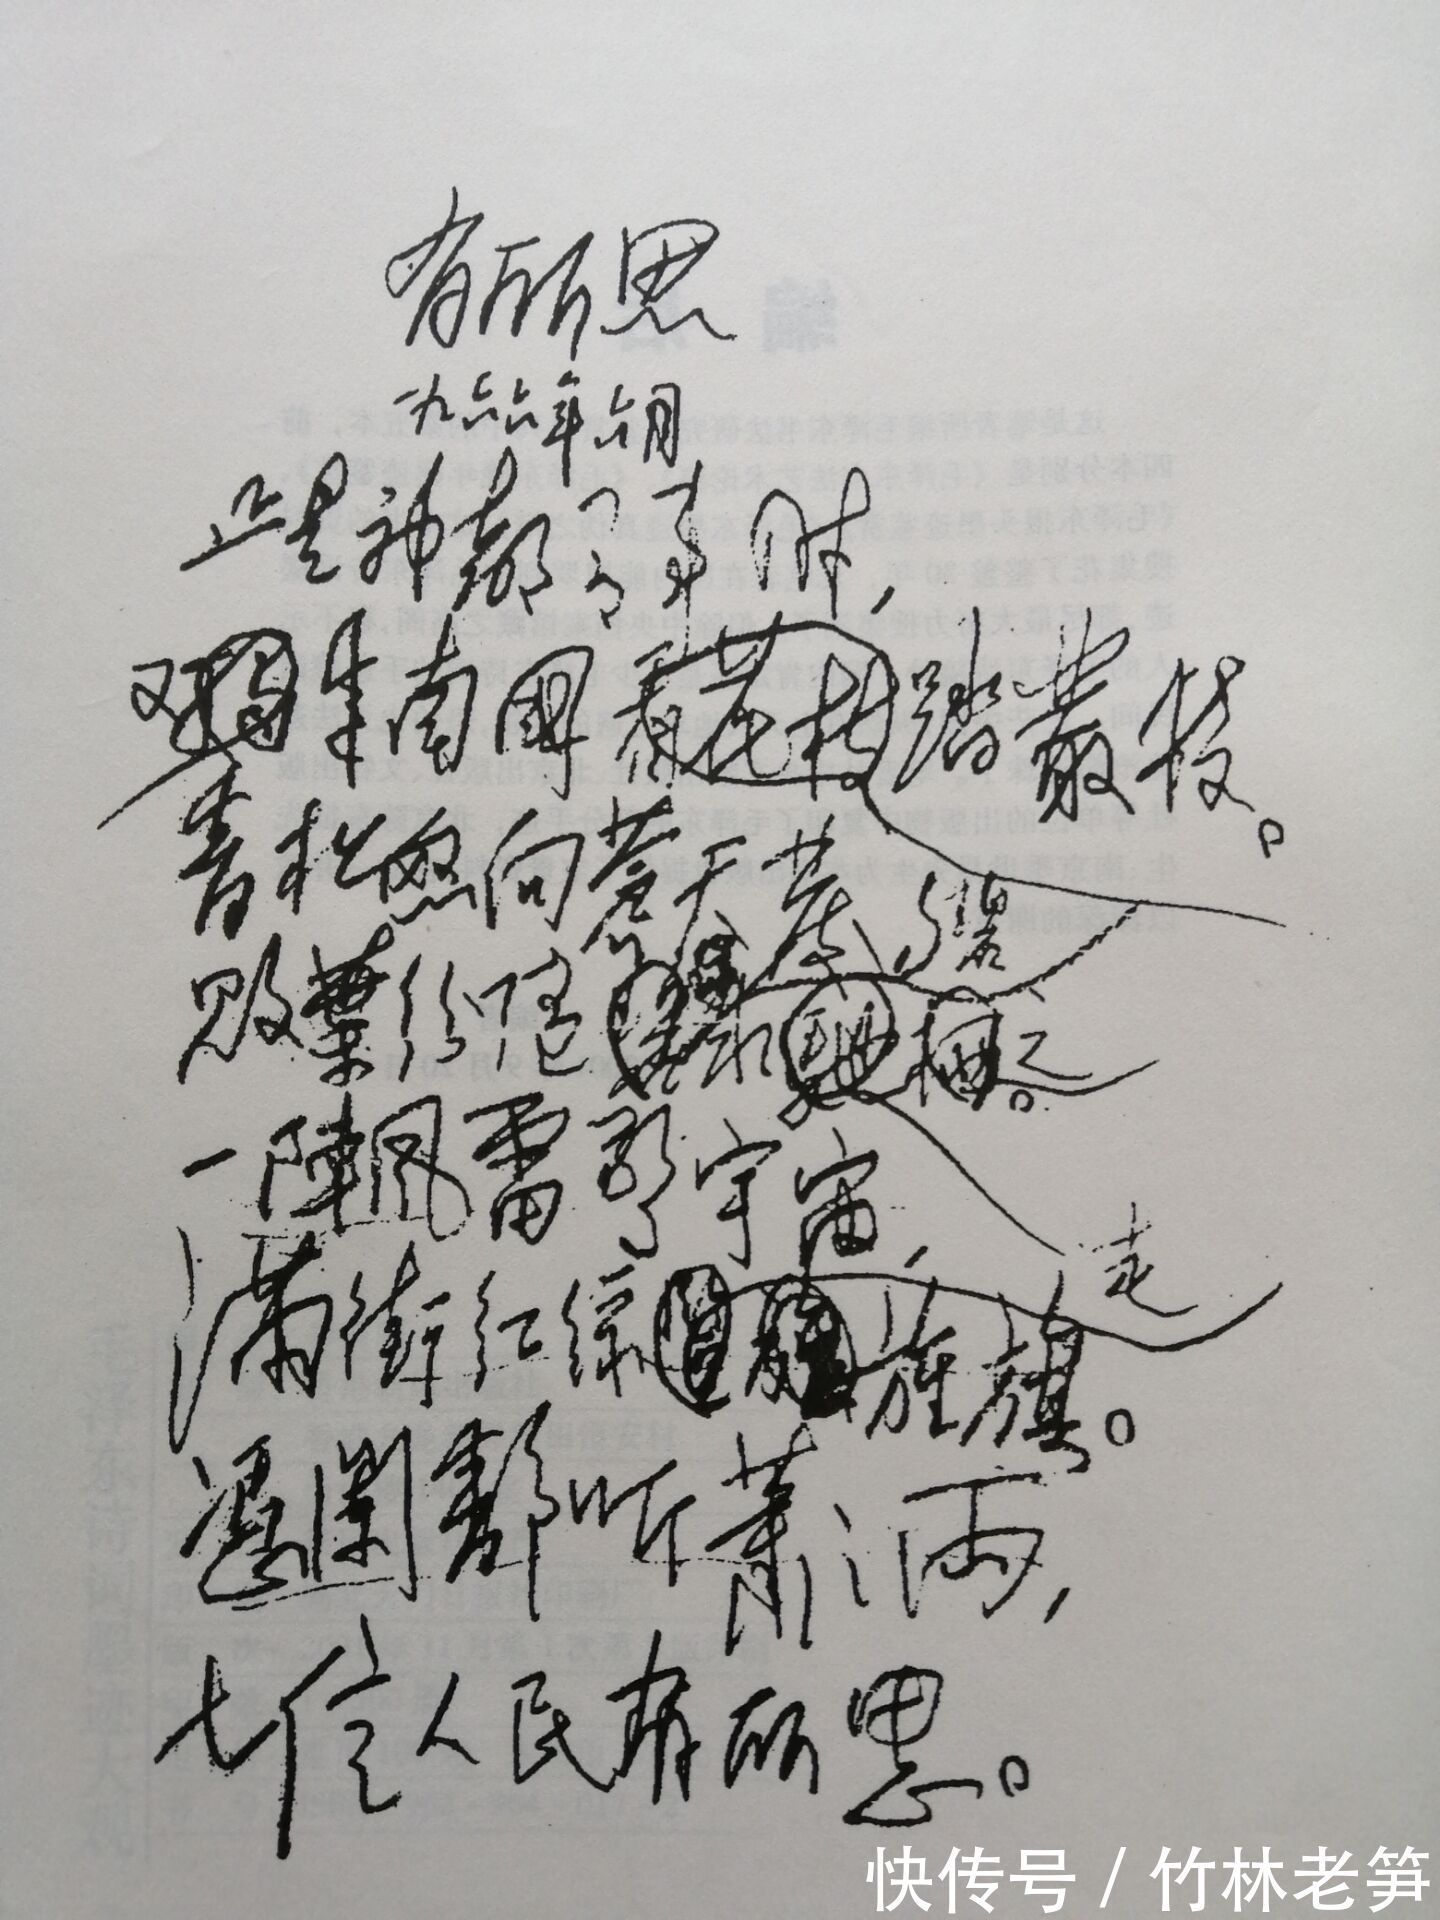 有所思
一九六六年六月
正是神都有事时，
又来南國踏叢枝。
青松怒向苍天发，
败葉纷随碧水
一阵风雷宇宙，
满街红绿走旌旗。
凭阑静听萧々雨，
七亿人民有所思。
快传号/竹林老笋